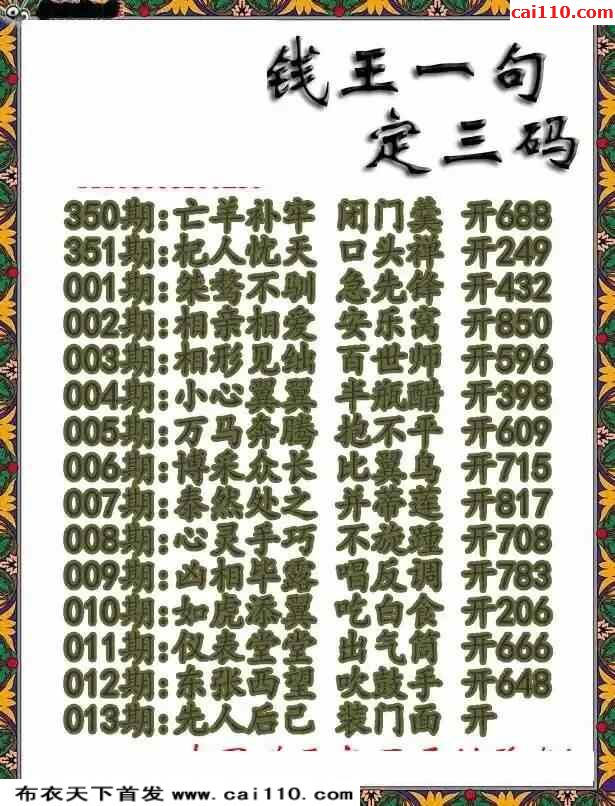 cai110.com
钱王一句
定三码
350期:亡羊补牢 闭门羹 开688
351期:杞人忧天 口头禅 开249
001期:桀骜不驯 急先锋 开432
002期:相亲相爱 安乐窝 开850
003期:相形见绌 百世师 开596
004期:小心翼翼 半瓶醋 开398
005期:万马奔腾 抱不平 开609
006期:博采众长 比翼鸟 开715
007期:泰然处之 并蒂莲 开817
008期:心灵手巧 不旋踵 开708
009期:凶相毕露 唱反调 开783
010期:如虎添翼 吃白食 开206
011期:仪表堂堂 出气筒 开666
012期:东张西望 吹鼓手 开648
013期:先人后己 装门面 开
布衣天下首发 www.cai110.com